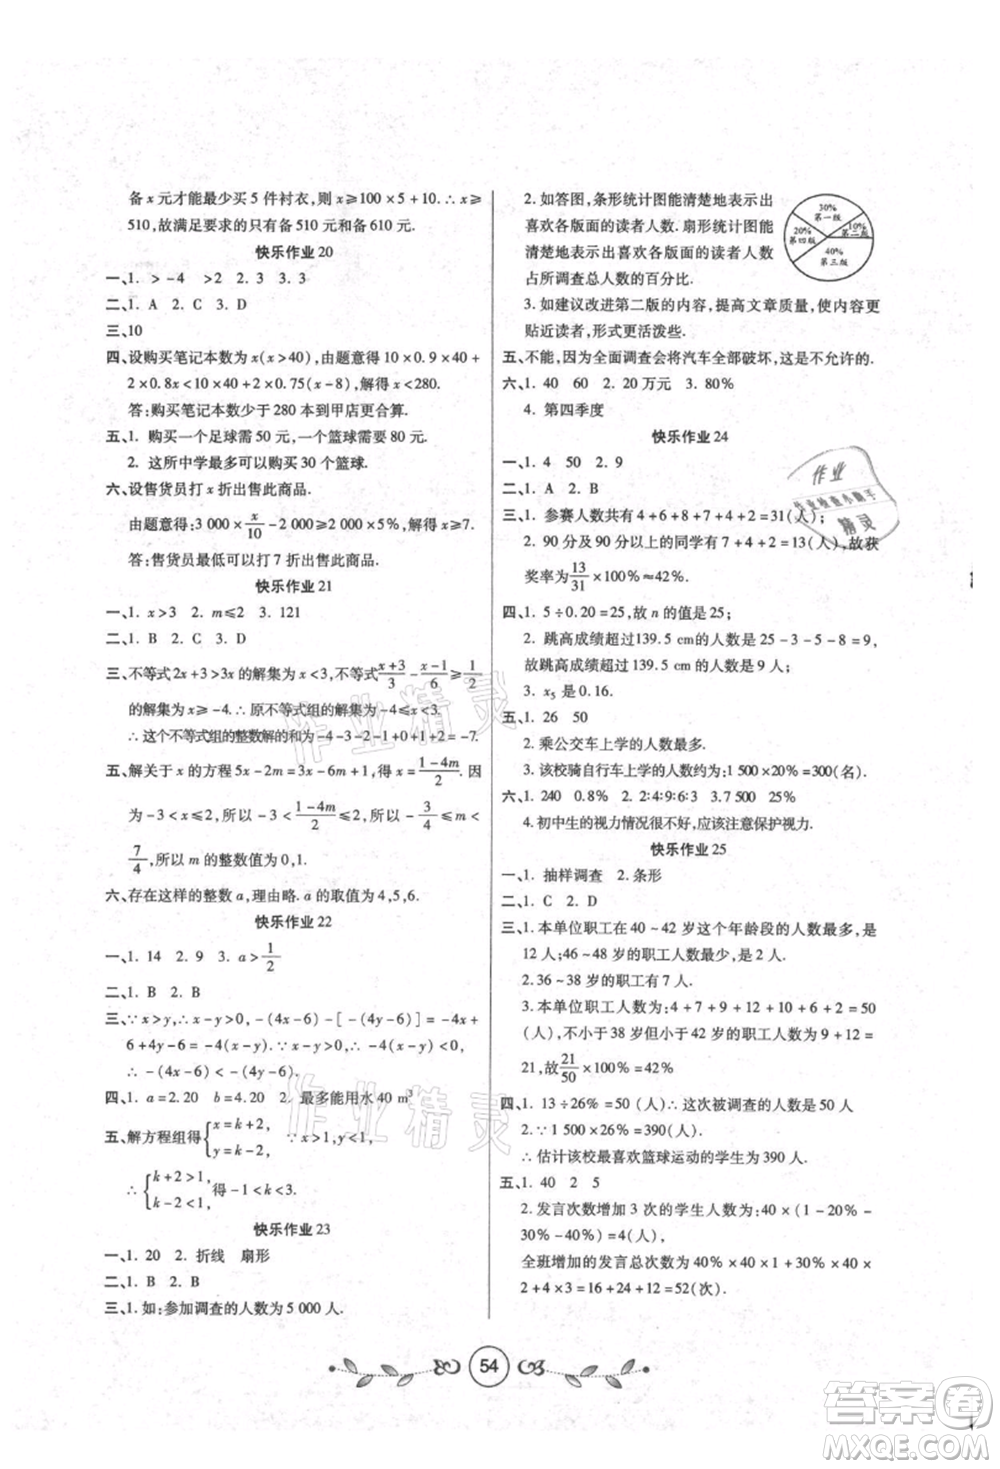 备 x 元才能最少买 5 件衬衣,则 x≥100×5+10.∴x≥
510,故满足要求的只有备 510 元和备 600 元.
快乐作业 20
一、1. >-4　>2　2. 3　3. 3
二、1. A　2. C　3. D
三、10
四、设购买笔记本数为 x(x>40),由题意得 10×0.9×40+
2×0.8x<10×40+2×0.75(x-8),解得 x<280.
答:购买笔记本数少于 280 本到甲店更合算.
五、1. 购买一个足球需 50 元,一个篮球需 80 元.
2. 这所中学最多可以购买 30 个篮球.
六、设售货员打 x 折出售此商品.
由题意得:3 000×x/10-2 000≥2 000×5%,解得 x≥7.
答:售货员可以打 7 折出售此商品.
快乐作业 21
一、1. x>3　2. m≤2　3. 121
二、1. B　2. C　3. D
三、不等式 2x+3>3x 的解集为 x<3,不等式(x+3)/3-(x-1)/6≥1/2
的解集为 x≥-4. ∴ 原不等式组的解集为-4≤x<3.
∴ 这个不等式组的整数解的和为-4-3-2-1+0+1+2=-7.
五、解关于 x 的方程 5x-2m=3x-6m+1,得 x=(1-4m)/2. 因
为-3<x≤2,所以,所以-3<(1-4m)/2≤2,所以-3/4≤m<
7/4,所以 m 的整数值为 0,1.
六、存在这样的整数 a,理由略. a 的取值为 4,5,6.
快乐作业 22
一、1. 14　2. 9　3. a>1/2
二、1. B　2. B
三、∵x>y,∴x-y>0, -(4x-6)-[-(4y-6)]=-4x+
6+4y-6=-4(x-y). ∵x-y>0,∴-4(x-y)<0,
∴-(4x-6)<-(4y-6).
四、1. a=2.20　b=4.20　2. 最多能用水 40 m³
五、解方程组得{x=k+2, y=k-2,　∵x>1,y<1,
∴{k+2>1, k-2<1,得-1<k<3.
快乐作业 23
一、1. 20　2. 折线　扇形
二、1. B　2. B
三、1. 如:参加调查的人数为 5 000 人.
2. 如答图,条形统计图能清楚地表示出
喜欢各版面的读者人数. 扇形统计图能
清楚地表示出喜欢各版面的读者人数
占所调查总人数的百分比.
30%
第一版
10%
第二版
20%
第四版
40%
第三版
3. 如建议改进第二版的内容,提高文章质量,使内容更
贴近读者,形式更活泼些.
五、不能,因为全面调查会将汽车全部破坏,这是不允许的.
六、1. 40　60　2. 20 万元　3. 80%
4. 第四季度
快乐作业 24
一、1. 4　50　2. 9
二、1. A　2. B
三、1. 参赛人数共有 4+6+8+7+4+2=31(人);
2. 90 分及 90 分以上的同学有 7+4+2=13(人),故获
奖率为13/31×100%≈42%.
四、1. 5÷0.20=25,故 n 的值是 25;
2. 跳高成绩超过139.5 cm的人数是 25-3-5-8=9,
故跳高成绩超过 139.5 cm的人数是 9 人;
3. x₅ 是 0.16.
五、1. 26　50
2. 乘公交车上学的人数最多.
3. 该校骑自行车上学的人数约为:1 500×20%=300(名).
六、1. 240　0.8%　2. 2:4:9:6:3　3.7 500　25%
4. 初中生的视力情况很不好,应该注意保护视力.
快乐作业 25
一、1. 抽样调查　2. 条形
二、1. C　2. D
三、1.本单位职工在 40~42 岁这个年龄段的人数最多,是
12人;46~48 岁的职工人数最少,是 4 人.
2.36~38 岁的职工有 7 人.
3.本单位职工人数为:4+7+9+12+8+6+4=50
(人),不小于 38 岁但小于 42 岁职工人数为 9+12=
21,故21/50×100%=42%
四、1. 13÷26%=50(人)∴ 这次被调查的人数是 50 人
2.∵1 500×26%=390(人)
∴ 估计该校最喜欢篮球运动的学生为 390 人.
五、1. 40　2　5
2. 发言次数增加 3 次的学生人数为:40×(1-20%-
30%-40%)=4(人)
全班增加的发言总次数为 40%×40×1+30%×40×
2+4×3=16+24+12=52(次).
54
作业
作业检查小助手
精灵
作业精灵
作业精灵
答案卷
MXQE.COM